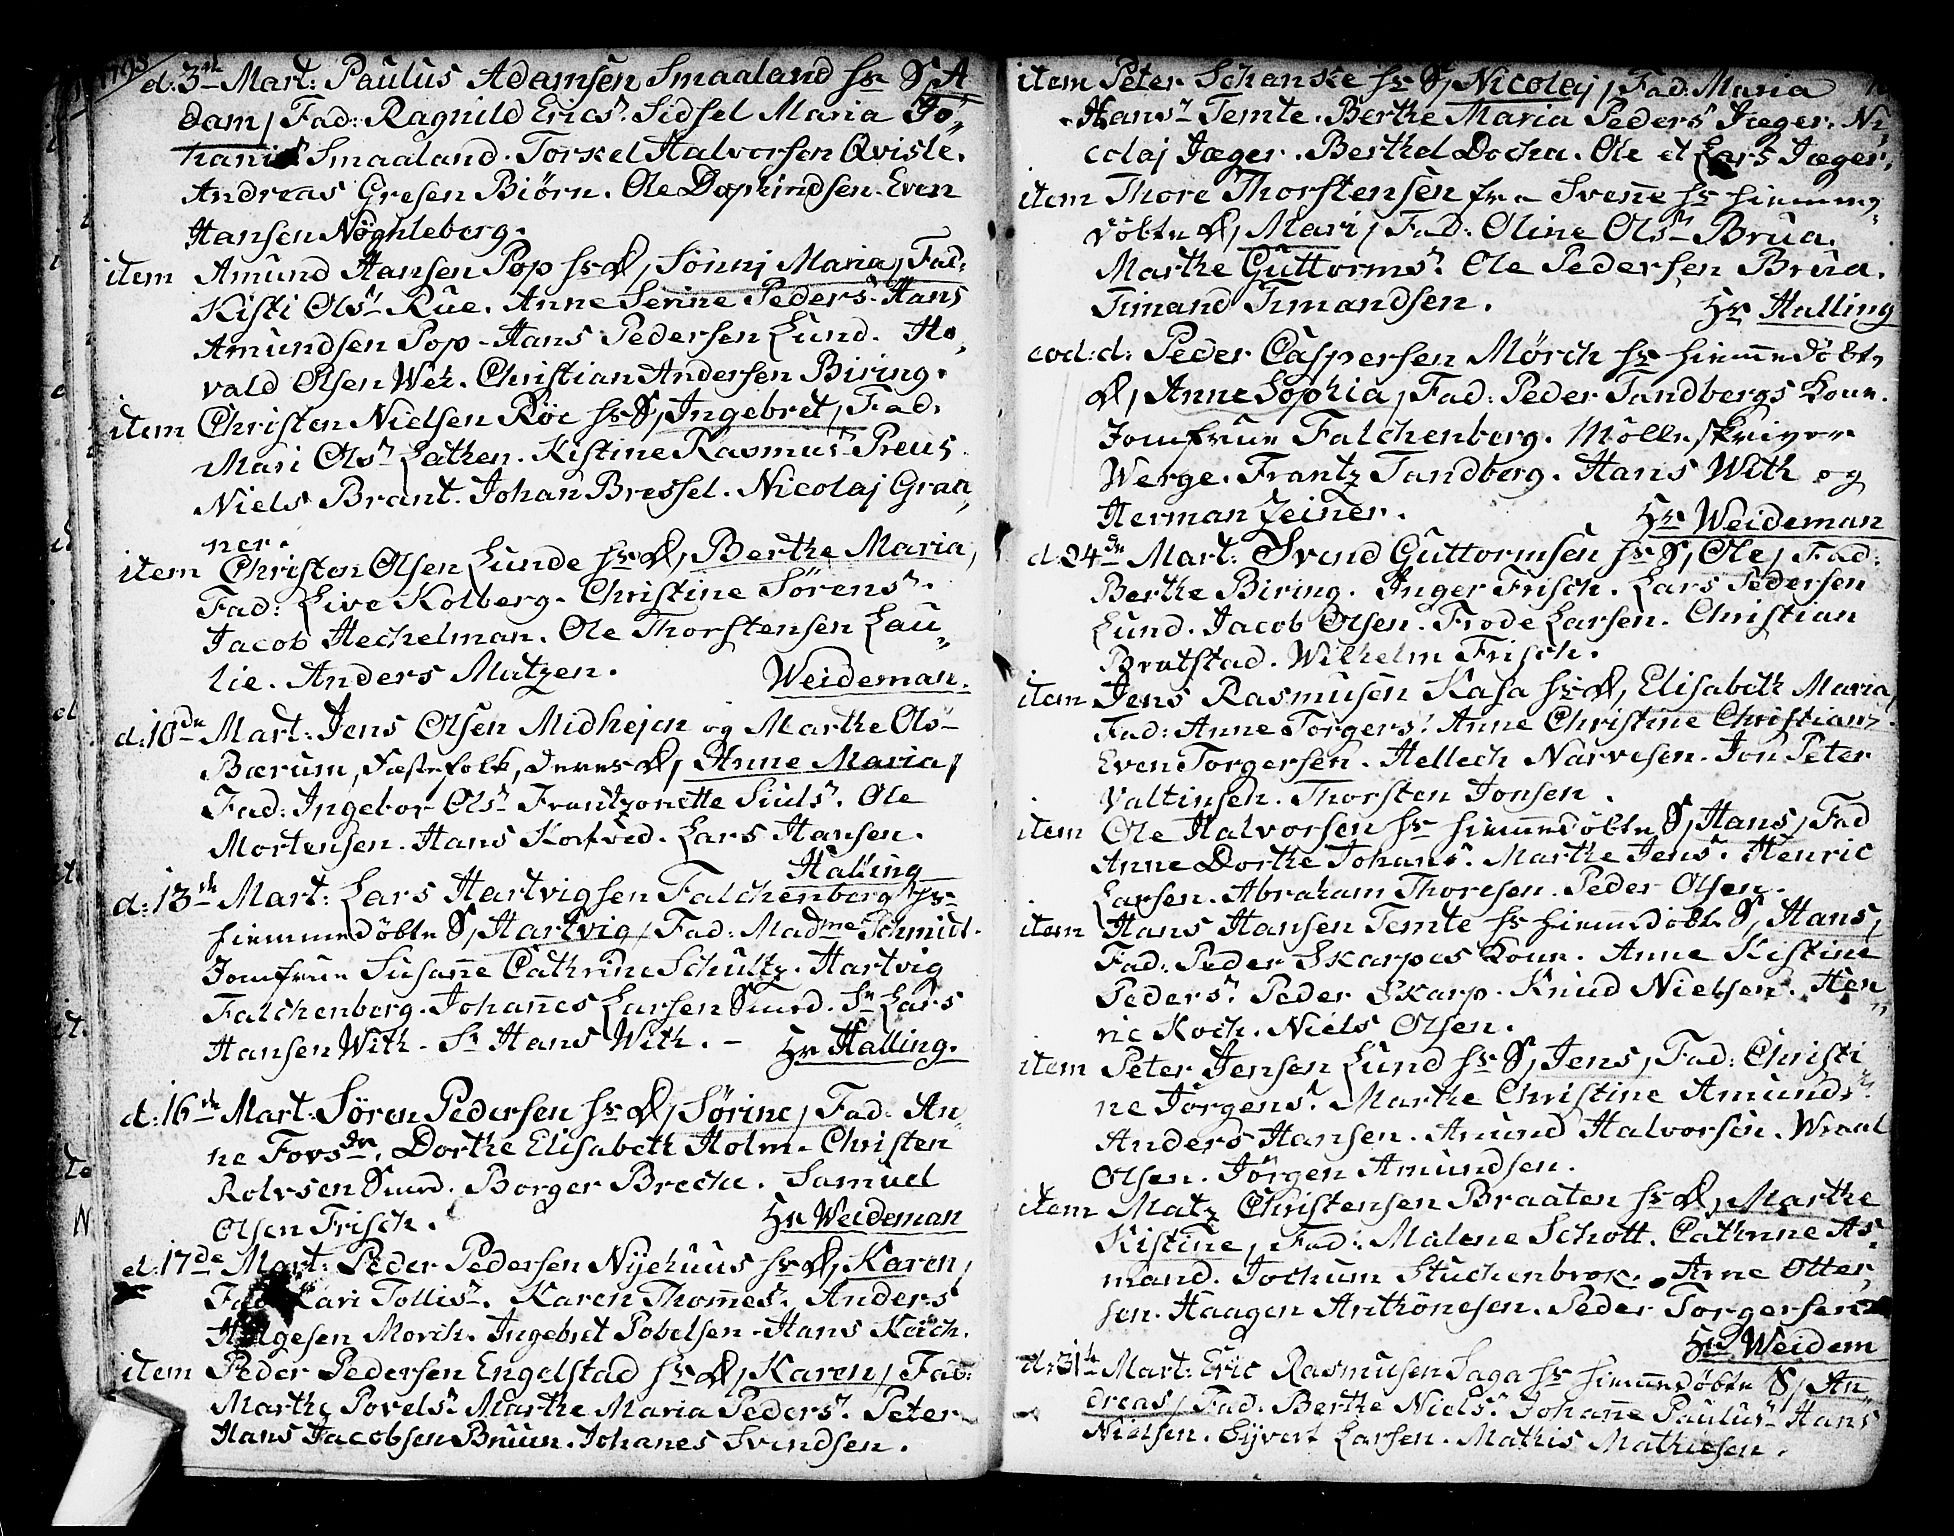 1793
d: 3die Mart: Paulus Adamsen Smaaland hs S, A
dam, Fad: Ragnild Ericsn. Sidsel Maria Jo„
hanis Smaaland. Torkel Halvorsen Qvisle.
Andreas Gresen Biørn. Ole Even
Hansen Nøghleberg.
item Amund Hansen Pop hs D, Sønnj Maria, Fad:
Kisti Olsn Rue. Anne Serine Pedersn. Hans
Amundsen Pop. Hans Pedersen Lund. Ho„
vald Olsen Weh. Christian Andersen Biring.
item Christen Nielsen Røe hs S, Ingebret, Fad:
Mari Olsn Lathen. Kistine Rasmusn Preus
Niels Brant. Johan Bressel. Nicolaj Graa„
ner.
item Christen Olsen Lunde hs D, Berthe Maria,
Fad: Live Kolberg. Christine Sørensn.
Jacob Hechelman. Ole Thorstensen Lau„
lie. Anders Matzen. Weideman.
d: 10de Mart: Jens Olsen Midhejen og Marthe Ols-
Bærum, Fæstefolk, deres D, Anne Maria,
Fad: Ingebor Olsn Frantzonette Siulsn. Ole
Mortensen. Hans Korfved. Lars Hansen.
Halling
d: 13de Mart: Lars Hartvigsen Falchenberg hs
hiemmedøbte S, Hartvig, Fad: Madme Schmidt.
Jomfrue Susanne Cathrine Schultz. Hartvig
Falchenberg. Johannes Larsen Smed. Sr Lars
Hansen With. Sr Hans With. - Hr Halling.
d: 16de Mart: Søren Pedersen hs D, Sørine, Fad: An„
ne Forsdn. Dorthe Elisabeth Holm. Christen
Rolvsen Smed. Borger Breche. Samuel
Olsen Frisch. Hr Weideman
d: 17de Mart: Peder Pedersen Nyehuus hs D, Karen,
Fad: Kari Tollisn. Karen Thomesn. Anders
Helgesen Morch. Ingebret Pobelsen. Hans Koch.
item Peder Pedersen Engelstad hs D, Karen, Fad:
Marthe Povelsn. Marthe Maria Pedersn. Peter
Hans Jacobsen Bruun. Johanes Svendsen.
item Peter Schanske hs S, Nicolaj, Fad: Maria
Hansn Temte. Berthe Maria Pedersn Jæger. Ni„
colaj Jæger. Berthel Docha. Ole et Lars Jæger.
item Thore Thorstensen fra Svenne hs hiemme„
døbte D, Mari, Fad: Oline Olsn Brua.
Marthe Guttormsn. Ole Pedersen Brua.
Simand Simandsen. Hr Halling
eod: d: Peder Caspersen Mørch hs hiemmedøbte
D, Anne Sophia, Fad: Peder Tandbergs Kone.
Jomfrue Falchenberg. Mølleskriver
Werge. Frantz Tandberg. Hans With og
Herman Zeiner. Hr Weideman
d: 24de Mart: Svend Guttormsen hs S, Ole, Fad:
Berthe Biring. Inger Frisch. Lars Pedersen
Lund. Jacob Olsen. Frode Larsen. Christian
Bratstad. Wilhelm Frisch.
item Jens Rasmusen Kasa hs D, Elisabeth Maria,
Fad: Anne Torgersn. Anne Christine Christiansn.
Even Torgersen. Hellech Narvesen. Jon Peter
Valtinsen. Thorsten Jonsen.
item Ole Halvorsen hs hiemmedøbte S, Hans, Fad
Anne Dorthe Johansn. Marthe Jensn. Henric
Larsen. Abraham Thoresen. Peder Olsen.
item Hans Hansen Temte hs hiemmedøbte S, Hans,
Fad: Peder Skarpes Kone. Anne Kistine
Pedersn. Peder Skarp. Knud Nielsen. Hen„
ric Koch. Niels Olsen.
item Peter Jensen Lund hs S, Jens, Fad: Christi
ne Jørgensn. Marthe Christine Amundsn.
Anders Hansen. Amund Halvorsen. Wraal
Olsen. Jørgen Amundsen.
item Matz Christensen Braaten hs D, Marthe
Kistine, Fad: Malene Schott. Cathrine As„
mand. Jochum Stuchenbrok. Arne Otter„
sen. Haagen Anthonesen. Peder Torgersen
Hr Weidem
d: 31te Mart: Eric Rasmusen Saga hs hiemmedøbte S, An„
dreas, Fad: Berthe Nielsn. Johanne Paulusn Hans
Nielsen. Syvert Larsen. Mathis Mathiesen.